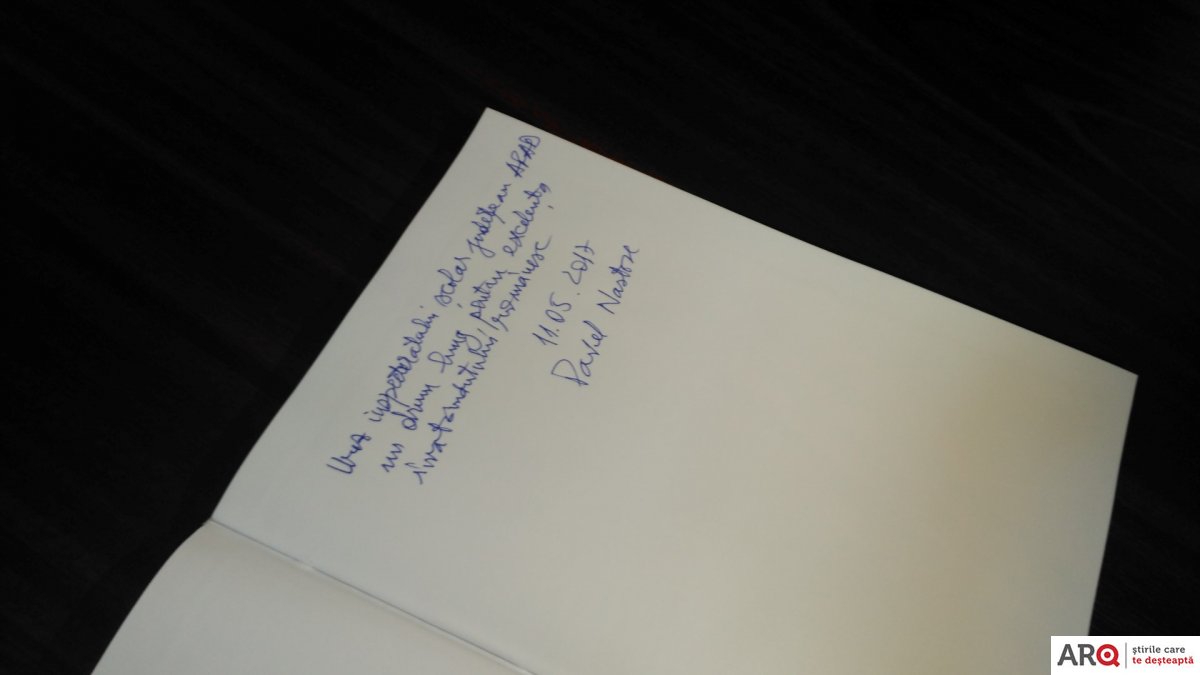 Urez inspectoratului școlar județean ARAD
un drum lung pentru excelența
învatamântului românesc
11.05.2017
Pavel Nastase
ARQ
știrile care
te deșteaptă